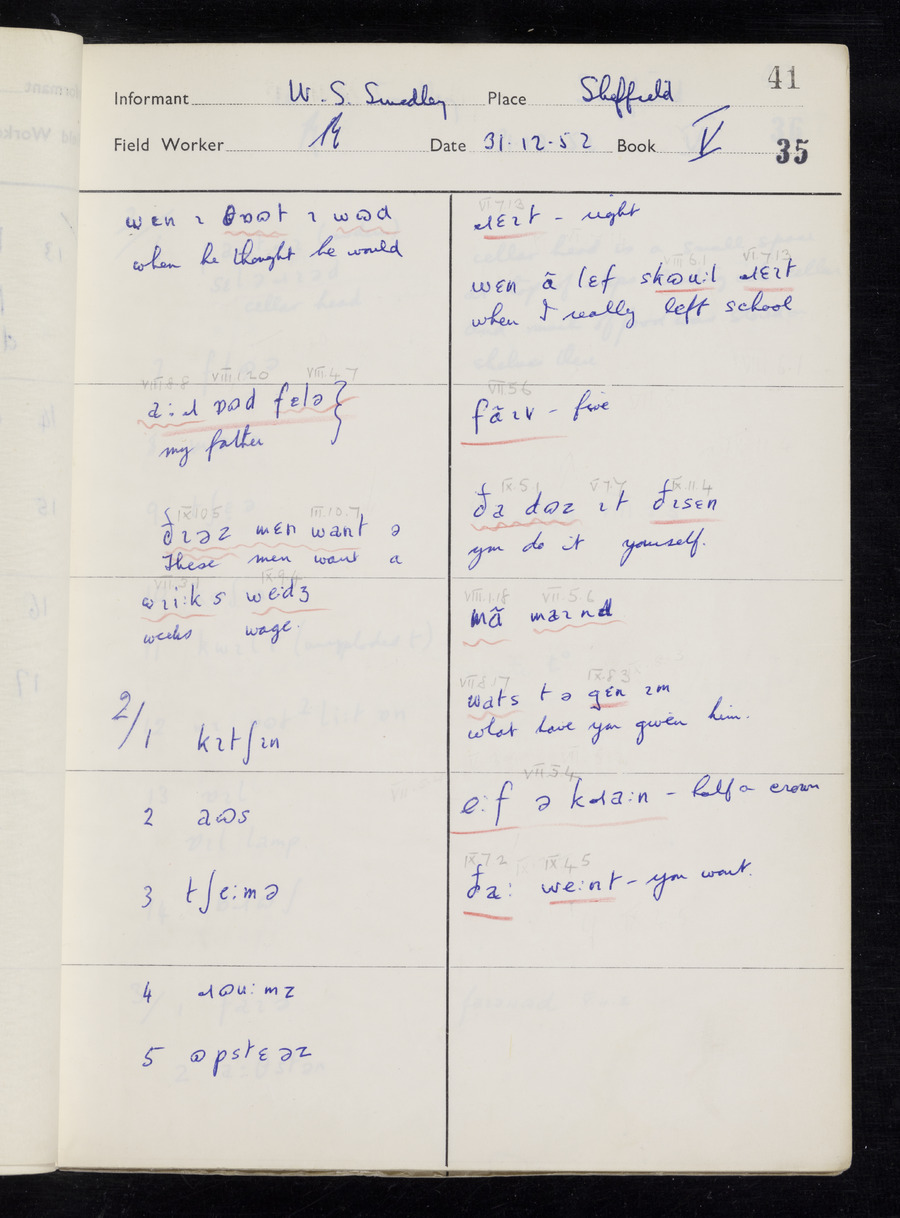 41
Informant W. S. Smedley Place Sheffield
Field Worker Date 31.12.52 Book V
35
wɛn ɪ θɒʊt ɪ wʊd
when he thought he would
VIII.8.8 VIII.1.20 VIII.4.7
my father
IX.10.5 III.10.7
ðɪəz mɛn want ə
These men want a
VII.3.1 IX.9.4
wɪi:ks we:dʒ
weeks wage.
2/1 kɪtʃɪn
2 aʊs
3 tʃe:mə
4 ɹʊu:mz
5 ʊpstɛəz
VI.7.13
ɹɛɪt – right
VIII.6.1 VI.7.13
wɛn ã lɛf skʊu:l ɹɛɪt
when I really left school
VII.5.6
fãɪv – five
IX.5.1 V.7.7 IX.11.4
ða dʊz ɪt ðɪsɛn
you do it yourself.
VIII.1.18 VII.5.6
mã maɪnd
VII.8.17 IX.8.3
wats tə gɛn ɪm
what have you given him.
VII.5.4
e:f ə kɹa:n – half a crown
IX.7.2 IX.4.5
ða: we:nt – you wont.